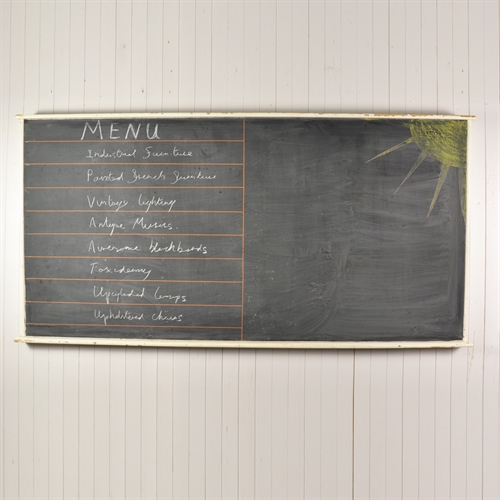 MENU
Industrial Furniture
Painted French Furniture
Vintage lighting
Antique Mirrors.
Awesome blackboards
Taxidermy
Upcycled Lamps
Upholstered chairs